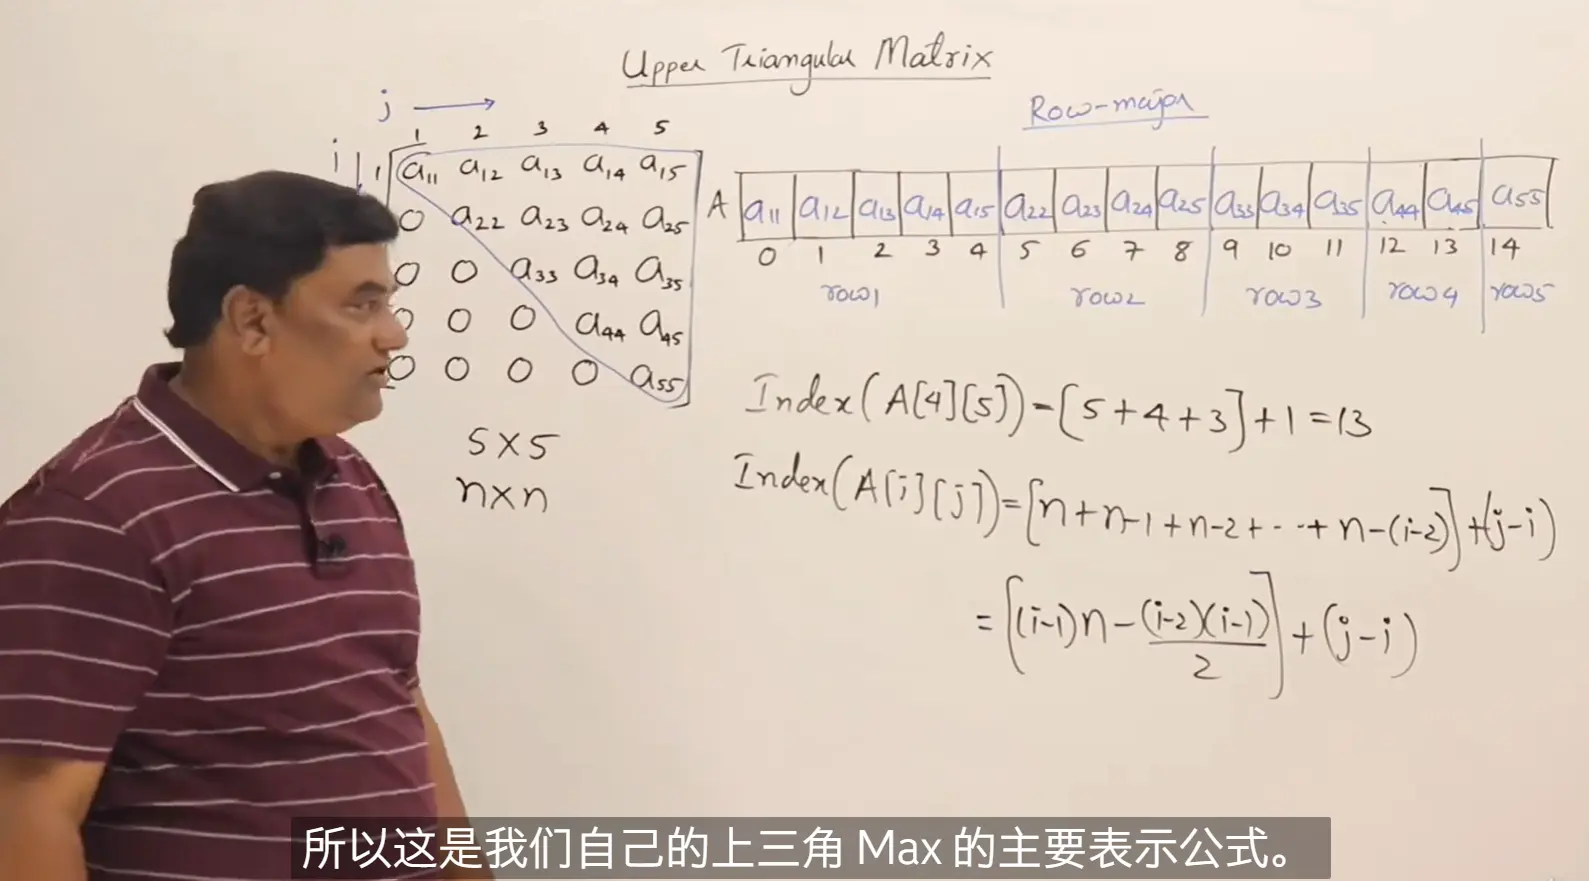 Upper Triangular Matrix
j →
Row-major
1 2 3 4 5
i ↓ 1 a11 a12 a13 a14 a15
0 a22 a23 a24 a25
0 0 a33 a34 a35
0 0 0 a44 a45
0 0 0 0 a55
5×5
n×n
A a11 a12 a13 a14 a15 a22 a23 a24 a25 a33 a34 a35 a44 a45 a55
0 1 2 3 4 5 6 7 8 9 10 11 12 13 14
row1 row2 row3 row4 row5
Index(A[4][5]) = [5+4+3]+1=13
Index(A[i][j]) = [n+n-1+n-2+--+n-(i-2)]+(j-i)
= [(i-1)n-(i-2)(i-1)/2]+(j-i)
所以这是我们自己的上三角 Max 的主要表示公式。